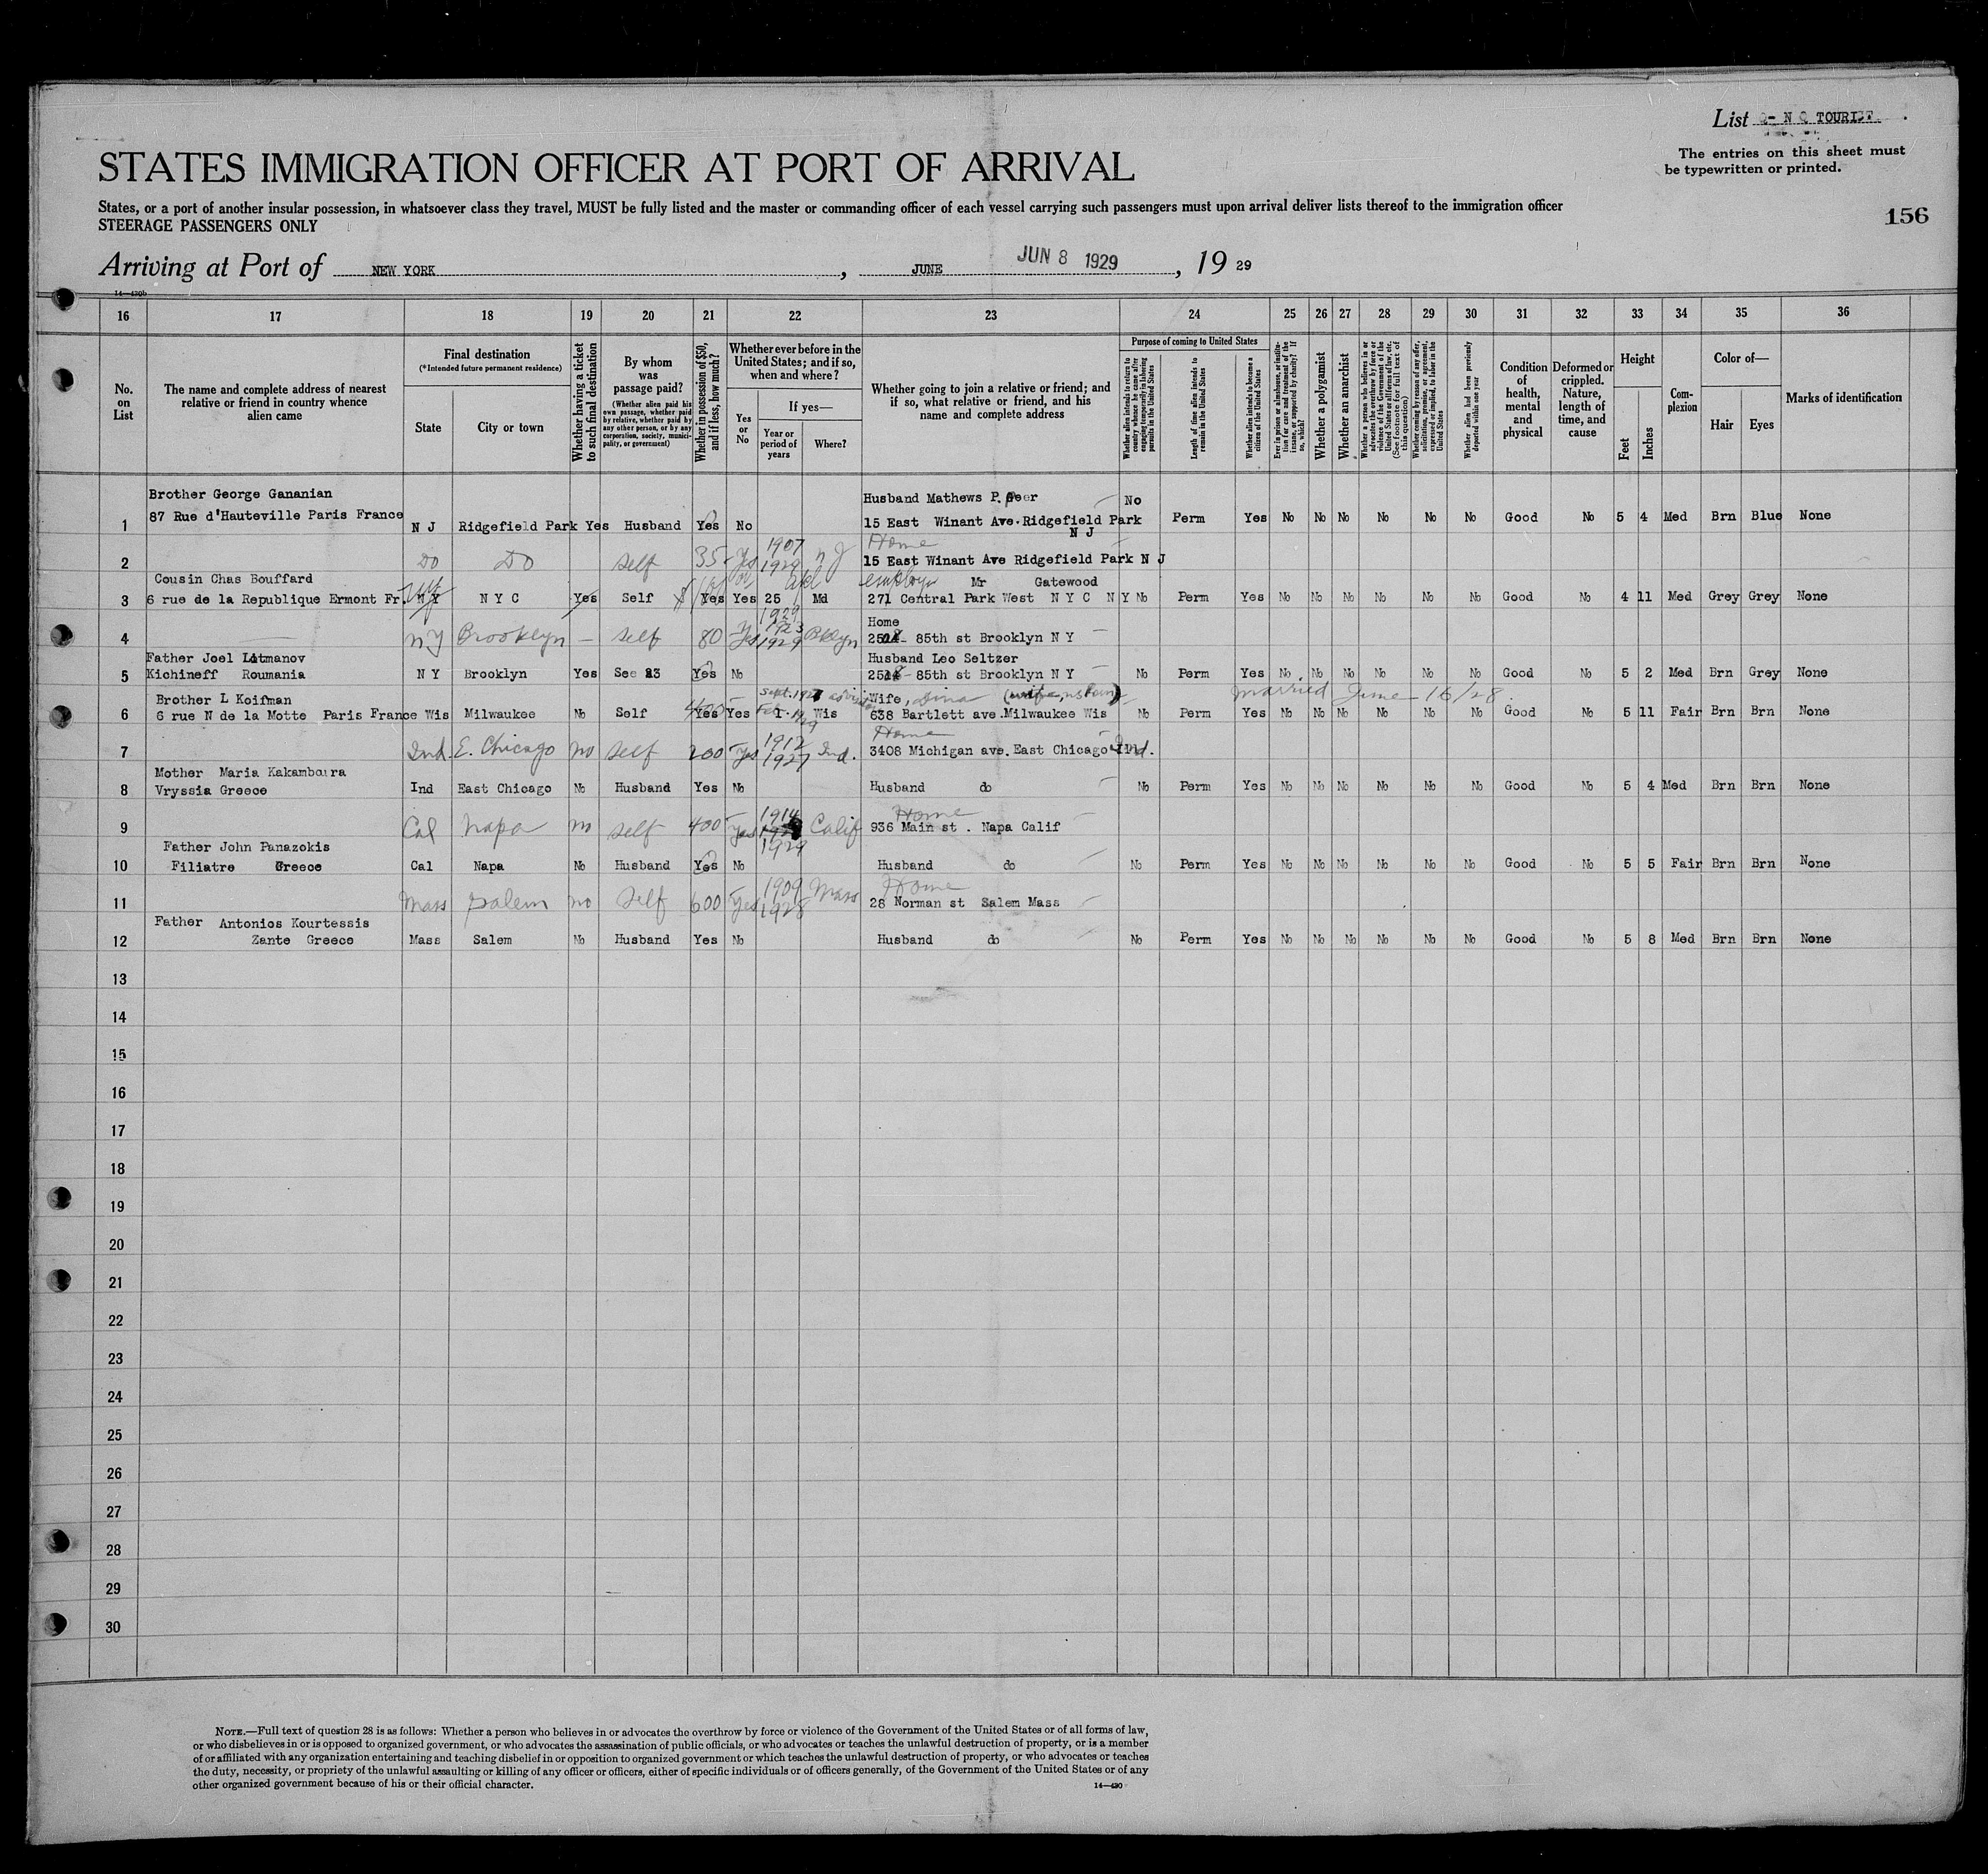 List Q- N Q TOURIST
The entries on this sheet must
be typewritten or printed.
STATES IMMIGRATION OFFICER AT PORT OF ARRIVAL
States, or a port of another insular possession, in whatsoever class they travel, MUST be fully listed and the master or commanding officer of each vessel carrying such passengers must upon arrival deliver lists thereof to the immigration officer
STEERAGE PASSENGERS ONLY
156
Arriving at Port of NEW YORK, JUNE JUN 8 1929, 19 29
14—430b
16 17 18 19 20 21 22 23 24 25 26 27 28 29 30 31 32 33 34 35 36
No. on List
The name and complete address of nearest relative or friend in country whence alien came
Final destination
(*Intended future permanent residence)
State
City or town
Whether having a ticket to such final destination
By whom was passage paid?
(Whether alien paid his own passage, whether paid by relative, whether paid by any other person, or by any corporation, society, municipality, or government)
Whether in possession of $50, and if less, how much?
Whether ever before in the United States; and if so, when and where?
Yes or No
If yes—
Year or period of years
Where?
Whether going to join a relative or friend; and if so, what relative or friend, and his name and complete address
Purpose of coming to United States
Whether alien intends to return to country whence he came after engaging temporarily in laboring pursuits in the United States
Length of time alien intends to remain in the United States
Whether alien intends to become a citizen of the United States
Ever in prison or almshouse, or institution for care and treatment of the insane, or supported by charity? If so, which?
Whether a polygamist
Whether an anarchist
Whether a person who believes in or advocates the overthrow by force or violence of the Government of the United States or all forms of law, etc. (See footnote for full text of this question)
Whether coming by reason of any offer, solicitation, promise, or agreement, expressed or implied, to labor in the United States
Whether alien had been previously deported within one year
Condition of health, mental and physical
Deformed or crippled. Nature, length of time, and cause
Height
Feet
Inches
Complexion
Color of—
Hair
Eyes
Marks of identification
Brother George Gananian Husband Mathews P. No
1 87 Rue d'Hauteville Paris France N J Ridgefield Park Yes Husband Yes No 15 East Winant Ave. Ridgefield Park N J Perm Yes No No No No No No Good No 5 4 Med Brn Blue None
Home
2 Do Do Self 35 Yes 1907 1929 N J 15 East Winant Ave Ridgefield Park N J
Cousin Chas Bouffard Mr Gatewood
3 6 rue de la Republique Ermont Fr. N Y N Y C Yes Self Yes Yes 25 Md 271 Central Park West N Y C N Y No Perm Yes No No No No No No Good No 4 11 Med Grey Grey None
Home
4 N Y Brooklyn — Self 80 Yes 1923 1929 Bklyn 85th st Brooklyn N Y
Father Joel Litmanov Husband Leo Seltzer
5 Kichineff Roumania N Y Brooklyn Yes See 23 Yes No 85th st Brooklyn N Y No Perm Yes No No No No No No Good No 5 2 Med Brn Grey None
Brother L Koifman Sept. Wife, married June 16/28
6 6 rue N de la Motte Paris France Wis Milwaukee No Self 400 Yes Yes Wis 638 Bartlett ave. Milwaukee Wis No Perm Yes No No No No No No Good No 5 11 Fair Brn Brn None
Home
7 Ind. E. Chicago No Self 200 Yes 1912 1927 Ind. 3408 Michigan ave. East Chicago Ind.
Mother Maria Kakamboura
8 Vryssia Greece Ind East Chicago No Husband Yes No Husband do No Perm Yes No No No No No No Good No 5 4 Med Brn Brn None
Home
9 Cal Napa No Self 400 Yes 1914 1929 Calif 936 Main st. Napa Calif
Father John Panazokis
10 Filiatre Greece Cal Napa No Husband Yes No Husband do No Perm Yes No No No No No No Good No 5 5 Fair Brn Brn None
Home
11 Mass Salem No Self 600 Yes 1909 1928 Mass 28 Norman st Salem Mass
Father Antonios Kourtessis
12 Zante Greece Mass Salem No Husband Yes No Husband do No Perm Yes No No No No No No Good No 5 8 Med Brn Brn None
13
14
15
16
17
18
19
20
21
22
23
24
25
26
27
28
29
30
NOTE.—Full text of question 28 is as follows: Whether a person who believes in or advocates the overthrow by force or violence of the Government of the United States or of all forms of law,
or who disbelieves in or is opposed to organized government, or who advocates the assassination of public officials, or who advocates or teaches the unlawful destruction of property, or is a member
of or affiliated with any organization entertaining and teaching disbelief in or opposition to organized government or which teaches the unlawful destruction of property, or who advocates or teaches
the duty, necessity, or propriety of the unlawful assaulting or killing of any officer or officers, either of specific individuals or of officers generally, of the Government of the United States or of any
other organized government because of his or their official character.
14—430